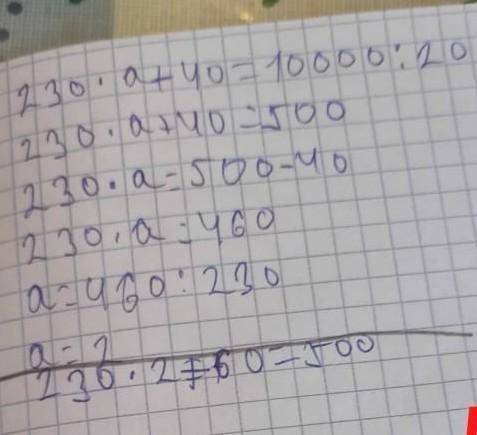 230·a+40=10000:20
230·a+40=500
230·a=500-40
230·a=460
a=460:230
a=2
230·2+60=500